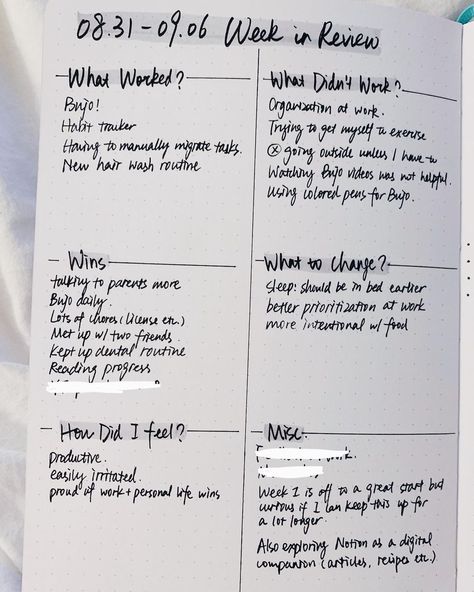 08.31 - 09.06 Week in Review
What Worked?
Bujo!
Habit tracker
Having to manually migrate tasks.
New hair wash routine
What Didn't Work?
Organization at work.
Trying to get myself to exercise
ⓧ going outside unless I have to
Watching Bujo videos was not helpful.
Using colored pens for Bujo.
Wins
talking to parents more
Bujo daily.
Lots of chores (license etc.)
Met up w/ two friends.
Kept up dental routine
Reading progress
What to Change?
Sleep: should be in bed earlier
better prioritization at work
more intentional w/ food
How Did I feel?
productive.
easily irritated.
proud of work + personal life wins
Misc.
Week 1 is off to a great start but
curious if I can keep this up for
a lot longer.
Also exploring Notion as a digital
companion (articles, recipes etc.)